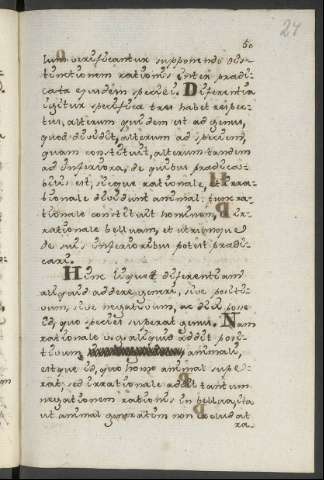 24
50
lum verificantur supponendo dis-
tinctionem rationis inter prædi-
cata ejusdem speciei. Diferentia
igitur specifica tres habet respec-
tus, alterum quidem est ad genus,
quod dividit, alterum ad speciem,
quam constituit, alterum tandem
ad inferiora, de quibus prædica-
bilis est, sicque rationale, et irra-
tionale dividunt animal: tunc ra-
tionale constituit hominem, & ir-
rationale belluam, et utrumque
de suis inferioribus potest prædi-
cari.
Hinc liquet diferentiam
aliquid addere generi, sive positi-
vum, sive negativum, ac dici posse
id, quo species superat genus. Nam
rationale v.g. aliquid addit posi-
tivum animali,
estque id, quo homo animal supe-
rat; sed irrationale addit tantum
negationem rationis in bellua, ita
ut animal generatim non excludat
ra-